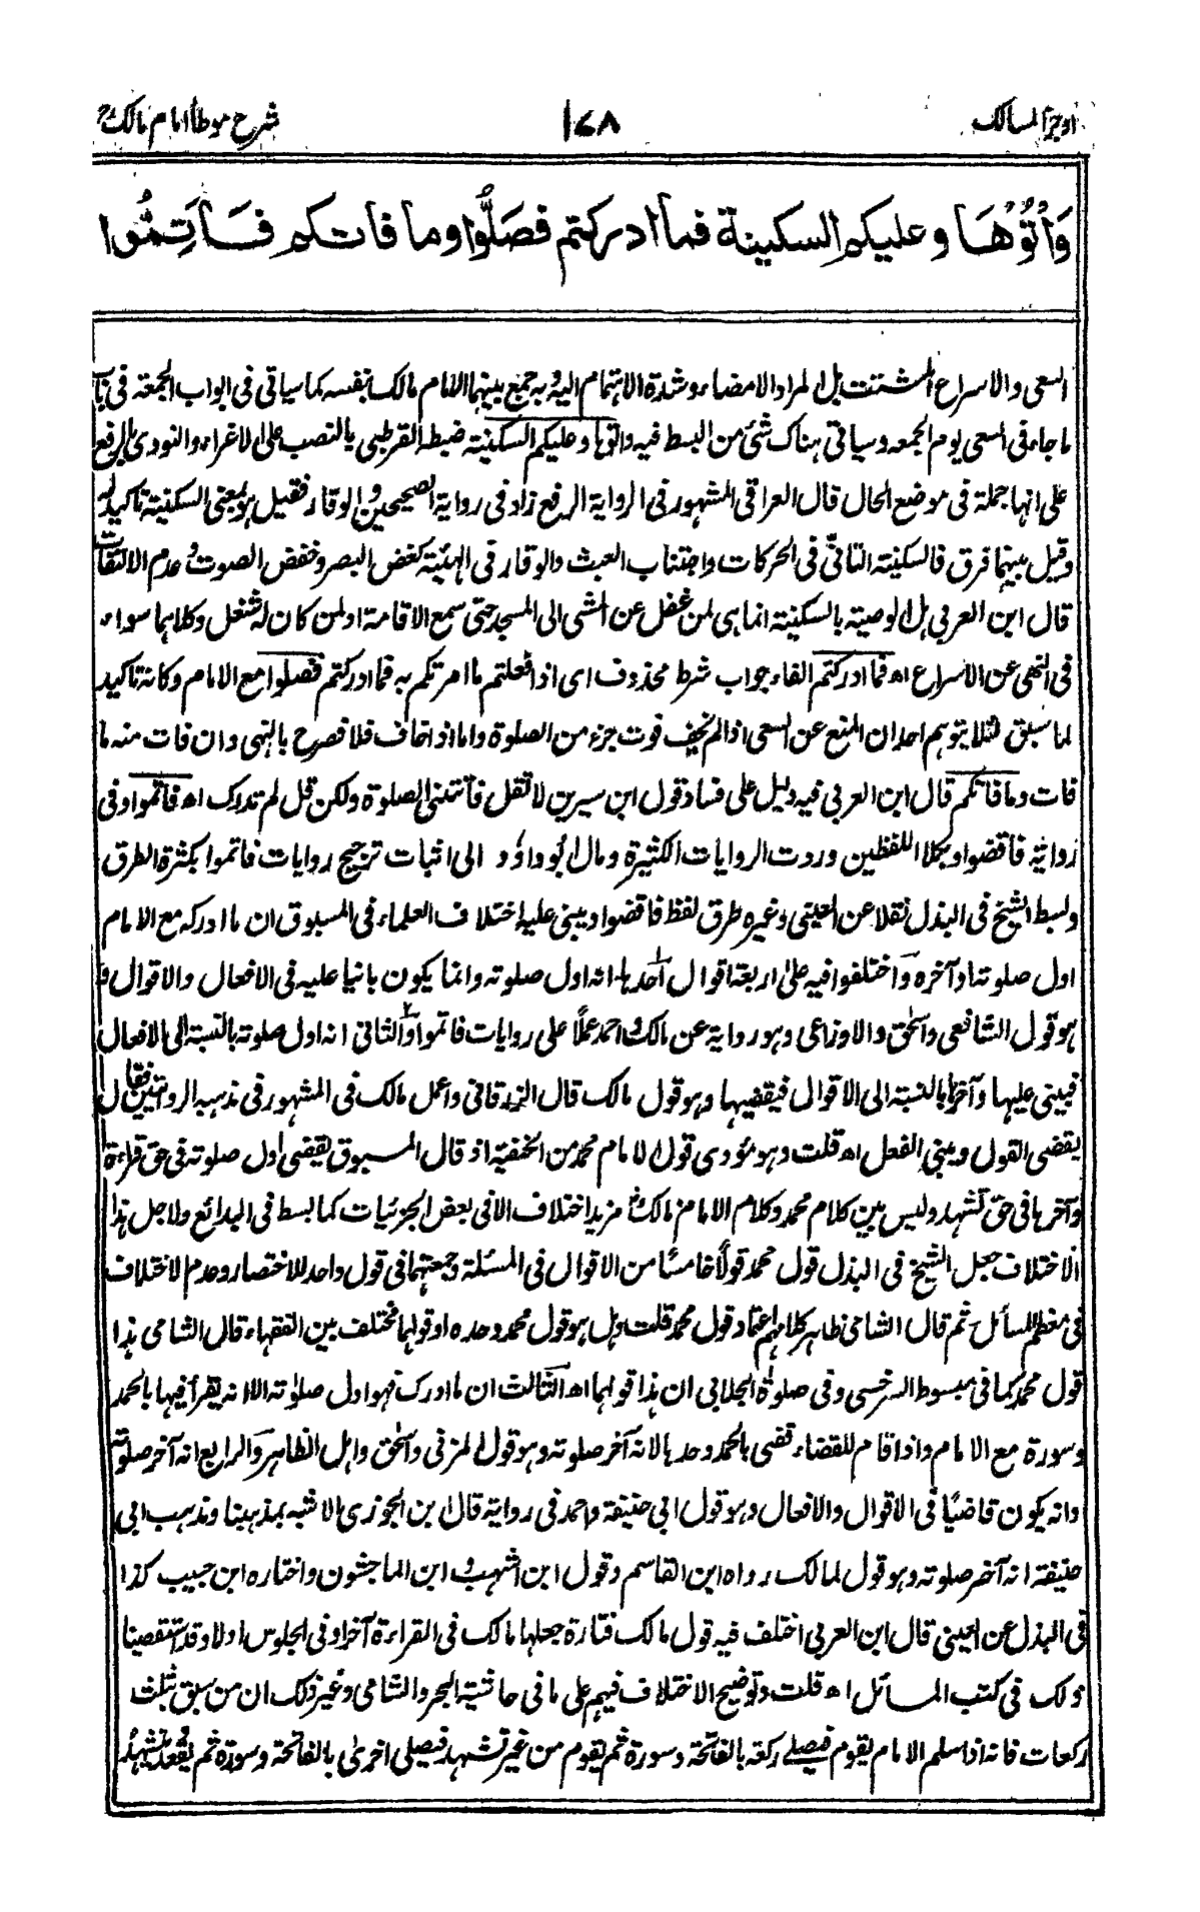 اوجز المسالك
١٧٨
شرح موطأ امام مالك
وَأْتُوْهَا وعليكم السكينة فما ادركتم فصَلُّوا وما فاتكم فَاَتِمُّوا
السعى والاسراع بل المراد الامضاء وشدة الاهتمام اليه وبه جمع بينهما الامام مالك بنفسه كما سياتى فى ابواب الجمعة فى باب
ما جاء فى السعى يوم الجمعه وسياتى هناك شئ من البسط فيه واتوها وعليكم السكينة ضبطه القرطبى بالنصب على الاغراء والنووى بالرفع
على انها جملة فى موضع الحال قال العراقى المشهور فى الرواية الرفع زاد فى رواية الصحيحين والوقار فقيل هو بمعنى السكينة تاكيد له
وقيل بينهما فرق فالسكينة التانى فى الحركات واجتناب العبث والوقار فى الهيئة كغض البصر وخفض الصوت وعدم الالتفات
قال ابن العربى بل الوصية بالسكينة انما هى لمن غفل عن المشى الى المسجد حتى سمع الاقامة او لمن كان له شغل وكلاهما سواء
فى النهى عن الاسراع اه فما ادركتم الفاء جواب شرط محذوف اى اذا فعلتم ما امرتكم به فما ادركتم فصلوا مع الامام وكانه تاكيد
لما سبق لئلا يتوهم احد ان المنع عن السعى اذا لم يخف فوت جزء من الصلوة واما اذا خاف فلا فصرح بالنهى وان فات منه ما
فات وما فاتكم قال ابن العربى فيه دليل على فساد قول ابن سيرين لا تقل فاتتنى الصلوة ولكن قل لم تدرك اه فاتموا وفى
رواية فاقضوا وبكلا اللفظين وردت الروايات الكثيرة ومال ابو داؤد الى اثبات ترجيح روايات فاتموا بكثرة الطرق
وبسط الشيخ فى البذل نقلا عن العينى وغيره طرق لفظ فاقضوا ويبنى عليه اختلاف العلماء فى المسبوق ان ما ادركه مع الامام
اول صلوته او آخره واختلفوا فيه على اربعة اقوال احدها انه اول صلوته وانما يكون بانيا عليه فى الافعال والاقوال و
هو قول الشافعى واسحق والاوزاعى وهو رواية عن مالك واحمد عملًا على روايات فاتموا والثانى انه اول صلوته بالنسبة الى الافعال
فيبنى عليها وآخرها بالنسبة الى الاقوال فيقضيها وهو قول مالك قال الزرقانى واعمل مالك فى المشهور فى مذهبه الروايتين فقال
يقضى القول ويبنى الفعل اه قلت وهو مؤدى قول الامام محمد من الحنفية اذ قال المسبوق يقضى اول صلوته فى حق قراءة
وآخرها فى حق تشهد وليس بين كلام محمد وكلام الامام مالك مزيد اختلاف الا فى بعض الجزئيات كما بسط فى البدائع ولاجل هذا
الاختلاف جعل الشيخ فى البذل قول محمد قولًا خامسًا من الاقوال فى المسئلة وجمعتهما فى قول واحد للاختصار وعدم الاختلاف
فى معظم المسائل ثم قال الشامى ظاهر كلامهم اعتماد قول محمد قلت وهل هو قول محمد وحده او قولهما مختلف بين الفقهاء قال الشامى هذا
قول محمد كما فى مبسوط السرخسى وفى صلوة الجلابى ان هذا قولهما اه الثالث ان ما ادرك فهو اول صلوته الا انه يقرأ فيها بالحمد
وسورة مع الامام واذا قام للقضاء قضى بالحمد وحدها لانه آخر صلوته وهو قول المزنى واسحق واهل الظاهر والرابع انه آخر صلوته
وانه يكون قاضيًا فى الاقوال والافعال وهو قول ابى حنيفة واحمد فى رواية قال ابن الجوزى الاشبه بمذهبنا ومذهب ابى
حنيفة انه آخر صلوته وهو قول لمالك رواه ابن القاسم وقول ابن اشهب وابن الماجشون واختاره ابن حبيب كذا
فى البذل عن العينى قال ابن العربى اختلف فيه قول مالك فتارة جعلها مالك فى القراءة آخرا وفى الجلوس اولا وقد استقصينا
ذلك فى كتب المسائل اه قلت وتوضيح الاختلاف فيهم على ما فى حاشية البحر والشامى وغير ذلك ان من سبق بثلث
ركعات فانه اذا سلم الامام يقوم فيصلى ركعة بالفاتحة وسورة ثم يقوم من غير تشهد فيصلى اخرى بالفاتحة وسورة ثم يقعد لتشهد